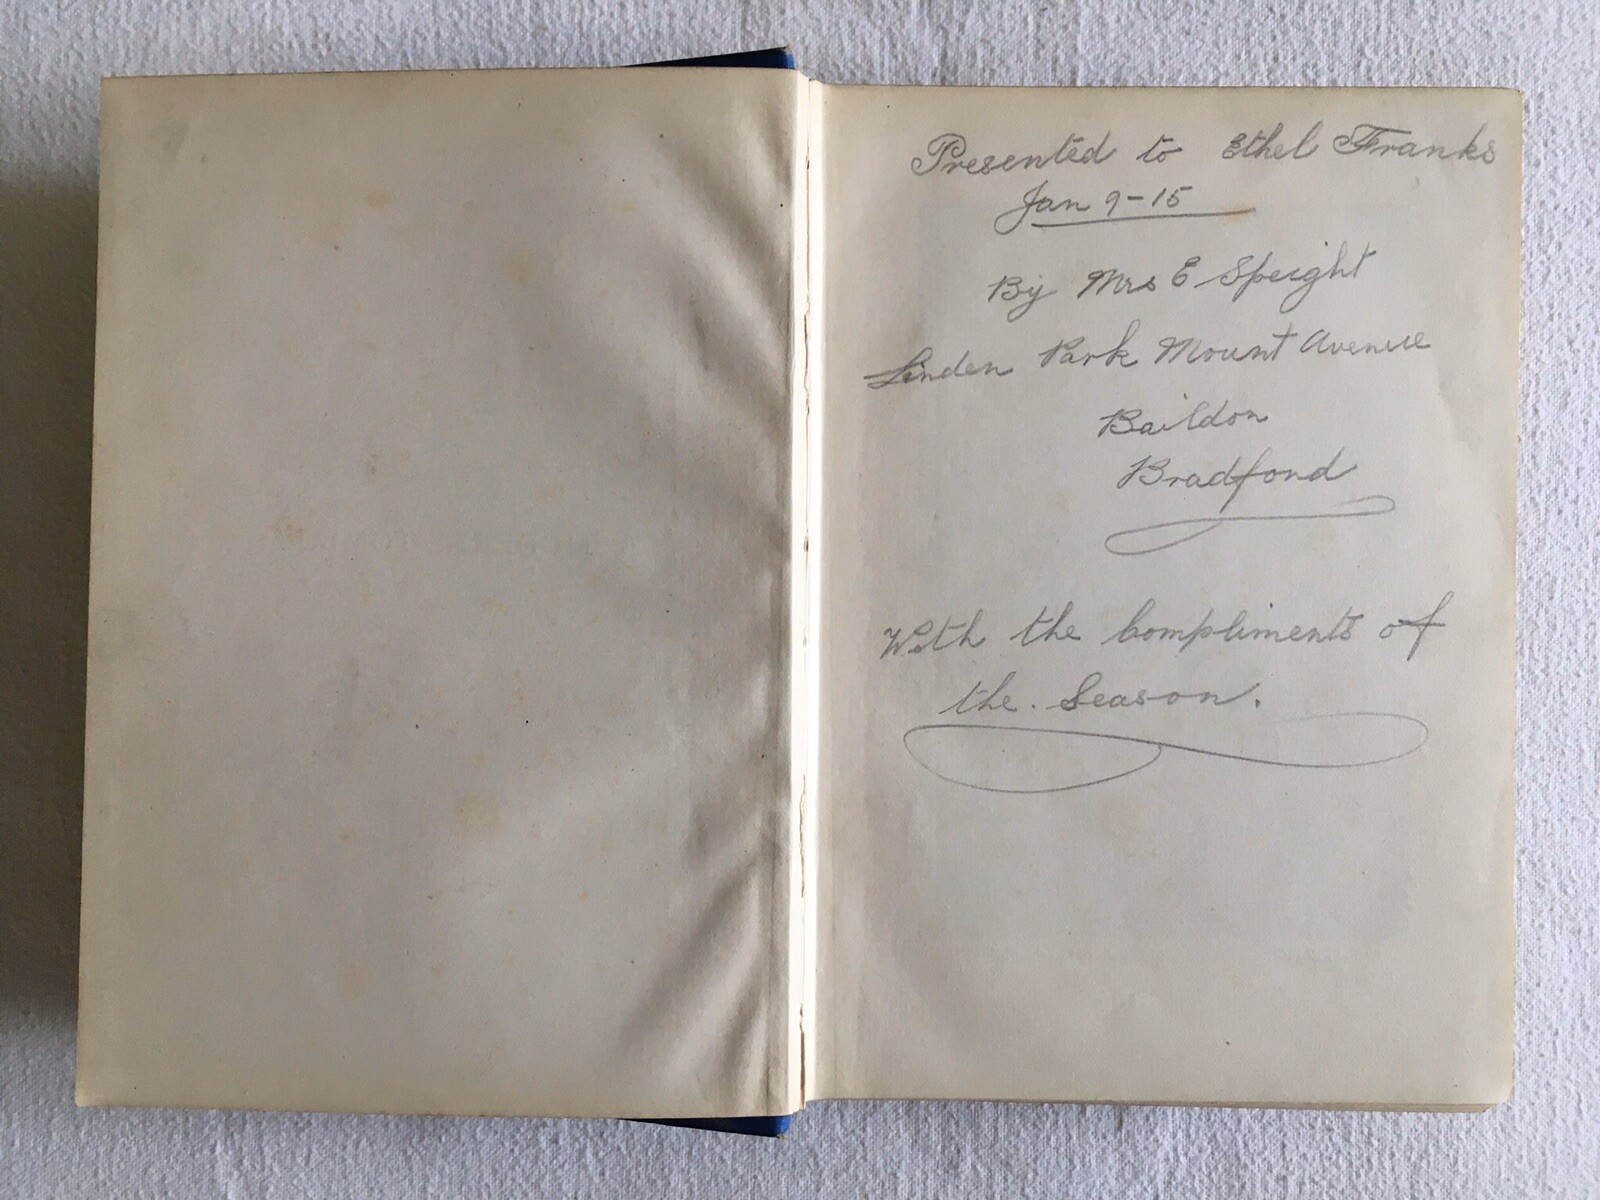 Presented to Ethel Franks
Jan 9-15
By Mrs E Speight
Linden Park Mount Avenue
Baildon
Bradford
With the Compliments of
the. Season.